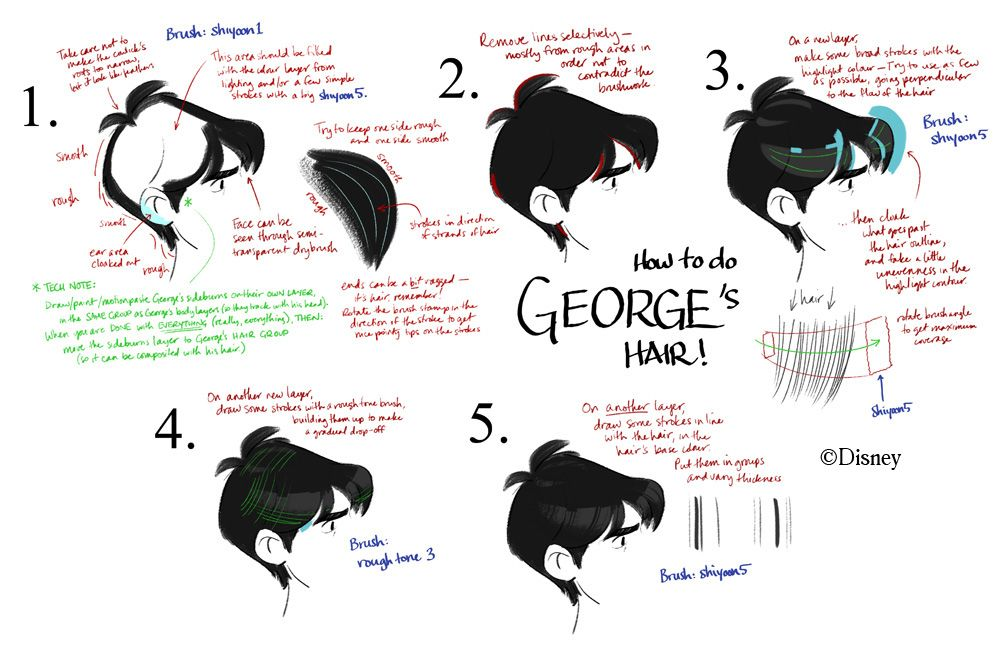 1.
Brush: shiyoon1
Take care not to
make the cowlick's
roots too narrow,
lest it look like feathers
This area should be filled
with the colour layer from
lighting and/or a few simple
strokes with a big shiyoon5.
smooth
rough
smooth
ear area
cloaked out
rough
*
Face can be
seen through semi-
transparent drybrush
Try to keep one side rough
and one side smooth
smooth
rough
strokes in direction
of strands of hair
ends can be a bit ragged —
it's hair, remember!
Rotate the brush stamp in the
direction of the stroke to get
nice pointy tips on the strokes
* TECH NOTE:
Draw/paint/motionpaste George's sideburns on their OWN LAYER,
in the SAME GROUP as George's body layers (so they track with his head).
When you are DONE with EVERYTHING (really, everything), THEN:
move the sideburns layer to George's HAIR GROUP
(so it can be composited with his hair)
2.
Remove lines selectively —
mostly from rough areas in
order not to
contradict the
brushwork
3.
On a new layer,
make some broad strokes with the
highlight colour — Try to use as few
as possible, going perpendicular
to the flow of the hair
Brush:
shiyoon5
...then cloak
what goes past
the hair outline,
and fake a little
unevenness in the
highlight contour.
How to do
GEORGE's
HAIR!
hair
rotate brush angle
to get maximum
coverage
shiyoon5
4.
On another new layer,
draw some strokes with a rough tone brush,
building them up to make
a gradual drop-off
Brush:
rough tone 3
5.
On another layer,
draw some strokes in line
with the hair, in the
hair's base colour.
Put them in groups
and vary thickness
Brush: shiyoon5
©Disney